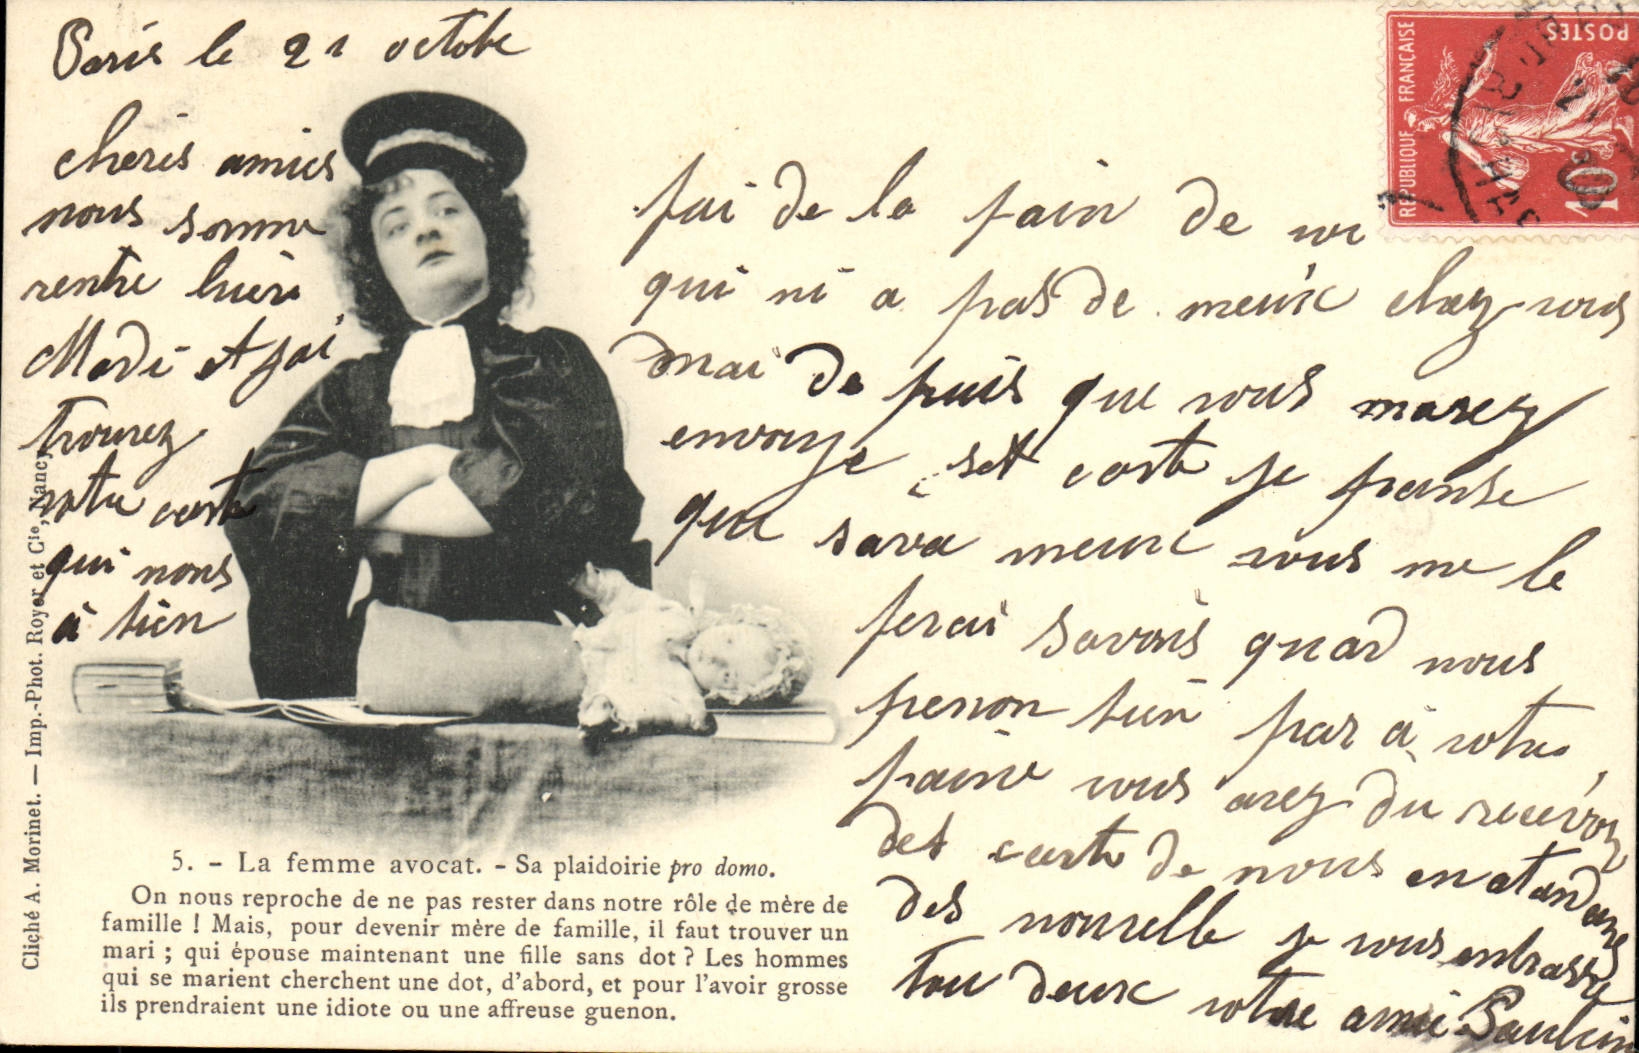 Paris le 21 octobe
cheris amies
nous somme
rentre hier
Mardi et jai
trouvez
votre carte
qui nous
a bien
fai de la pain de
qui ni a pas de meux chez vous
mai de puis que vous m'avez
envoye set carte je panse
que sava meux vous me le
ferai savois quad nous
penson bien par a votre
paine vous avez du recevoz
des carte de nous en atandans
des nouvelle je vous enbrasse
tou deux votre amie Paulin
REPUBLIQUE FRANÇAISE
POSTES
10
5. - La femme avocat. - Sa plaidoirie pro domo.
On nous reproche de ne pas rester dans notre rôle de mère de
famille ! Mais, pour devenir mère de famille, il faut trouver un
mari ; qui épouse maintenant une fille sans dot ? Les hommes
qui se marient cherchent une dot, d'abord, et pour l'avoir grosse
ils prendraient une idiote ou une affreuse guenon.
Cliché A. Morinet. — Imp.-Phot. Royer et Cie, Nancy